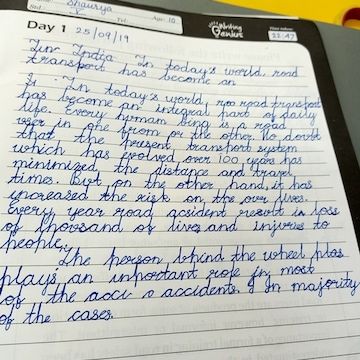 Shaurya
Std:
Tel:
Age: 10
Writing
Genius
Day 1 25/09/19
22:47
In India, In today's world, road
transport has become an
I. In today's world, roo road transport
has become an integral part of daily
life. Every human being is a road
user in one from or the other. No doubt
that the present transport system
which has evolved over 100 years has
minimized the distance and travel
times. But on the other hand, it has
increased the risk on the over lives.
Every year road accident result in loss
of thousand of lives and injuries to
people.
The person bhind the wheel plas
plays an inportant role in most
of the acci o accidents. I In majority
of the cases.